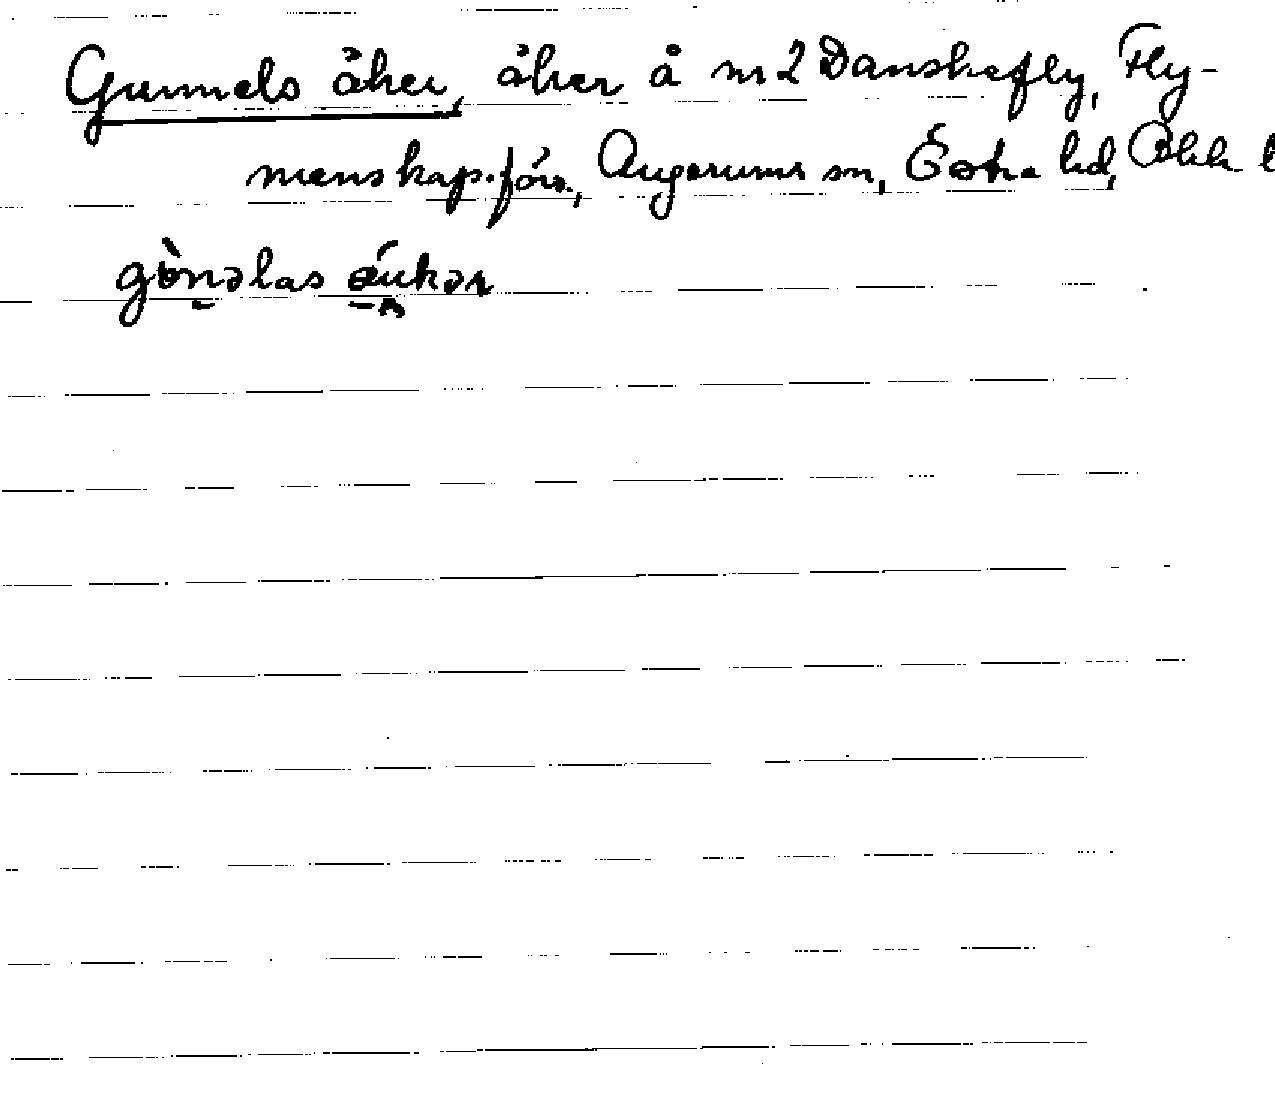 Gunnels åker, åker å nr 2 Danskefly, Fly-
menskap. förs., Augerums sn, Östra hd, Blek l
gònəlas áukər